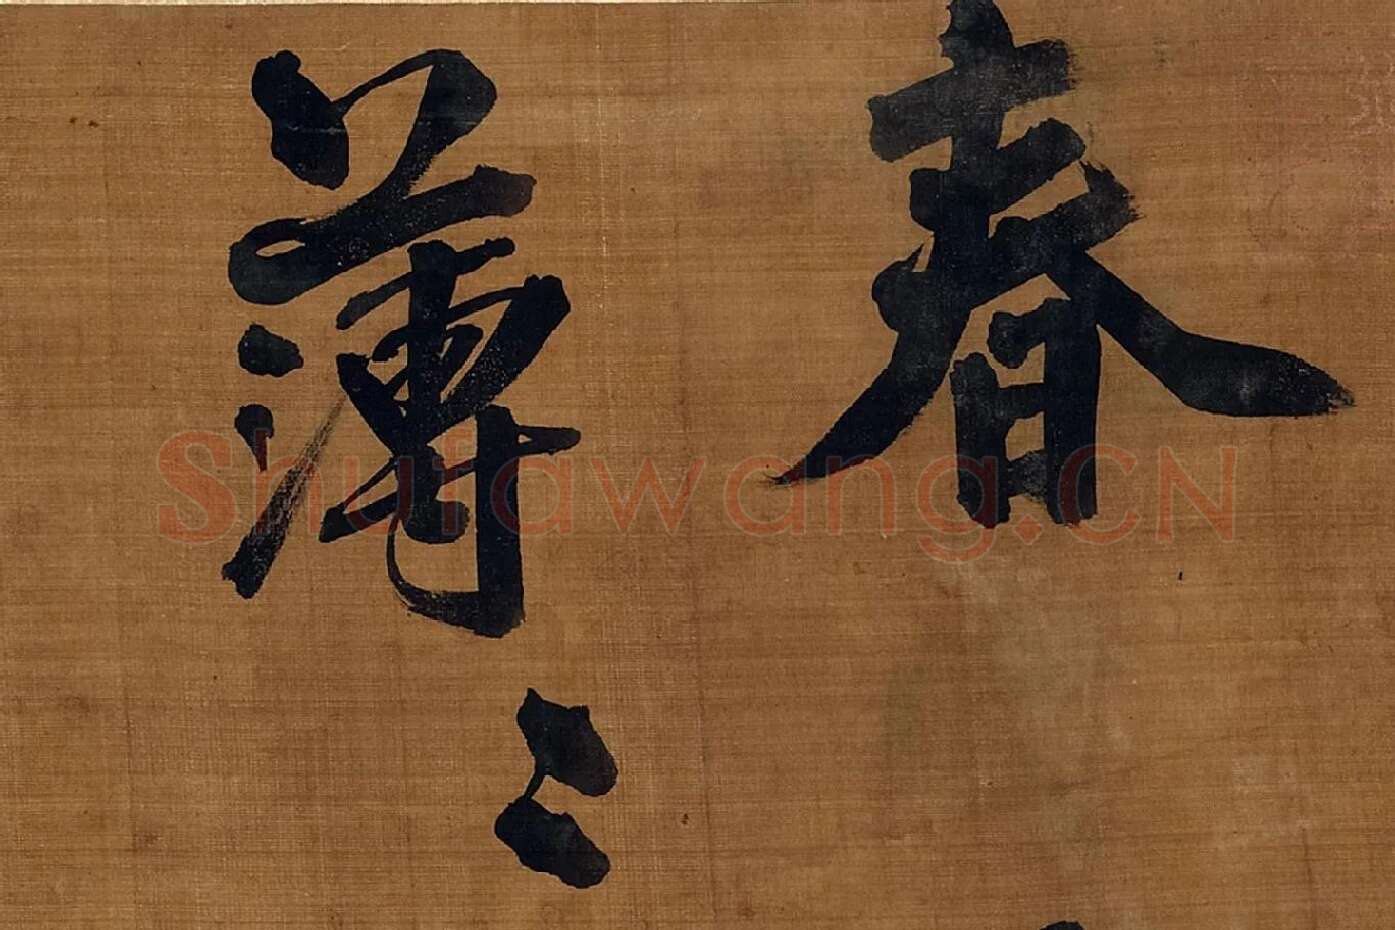 春
薄々
Shufawang.CN